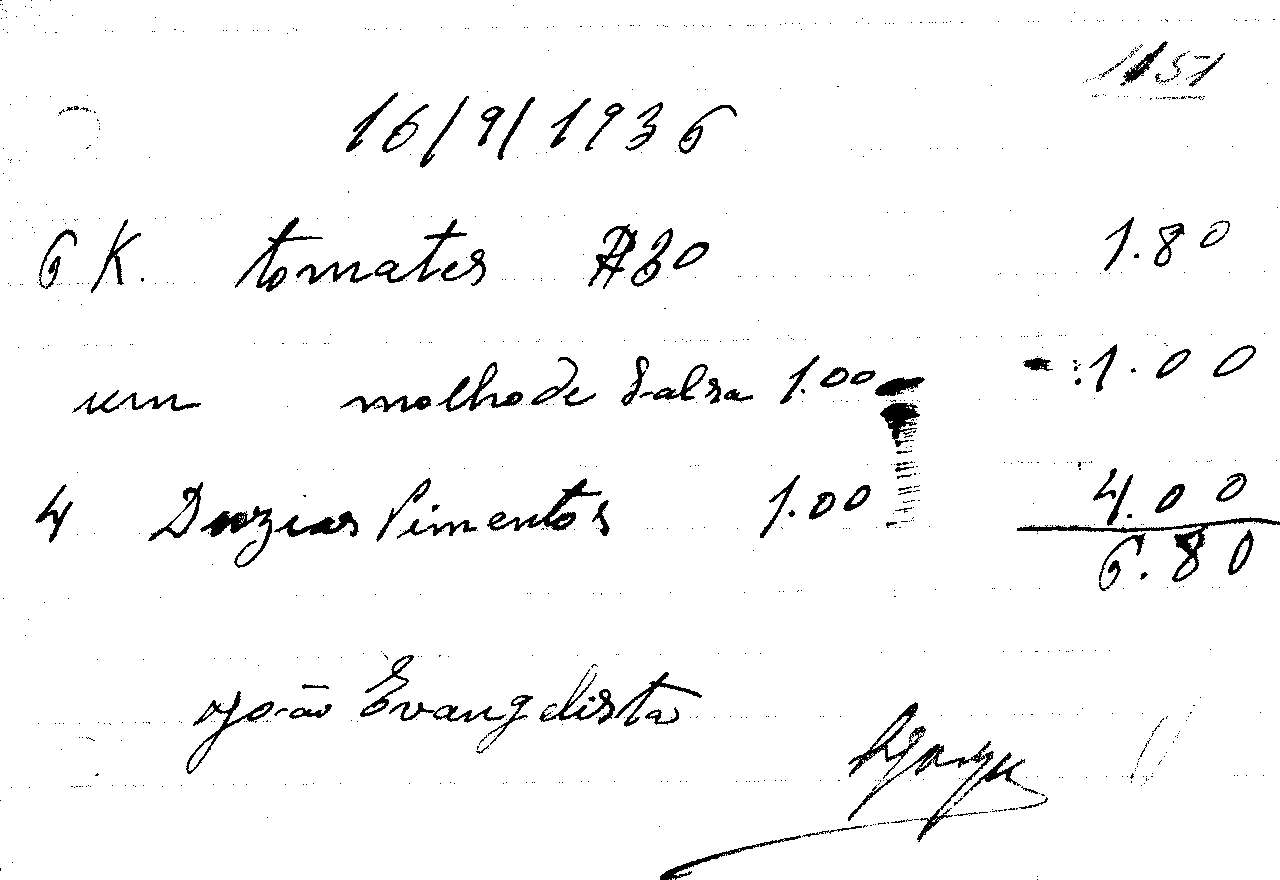 1151
16/9/1936
6 K. tomates $30 1.80
um molho de Salsa 1.00 1.00
4 Duzias Pimentos 1.00 4.00
6.80
João Evangelista